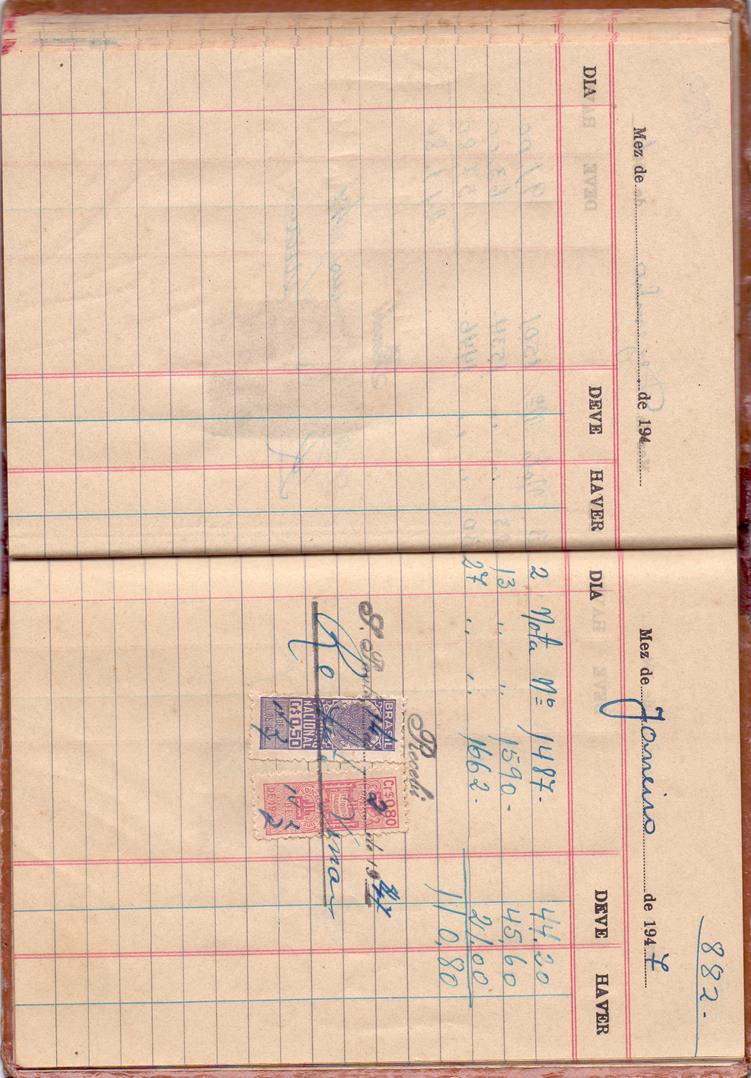 Mez de de 194
DIA DEVE HAVER
882.
Mez de Janeiro de 1947
DIA DEVE HAVER
2 Nota Nº 1487. 44,20
13 " " 1590. 45,60
27 " " 1662. 21,00
110,80
Recebi
S. Paulo 2 de 1947
BRASIL
NACIONAL
Cr$0,50
Cr$0,80